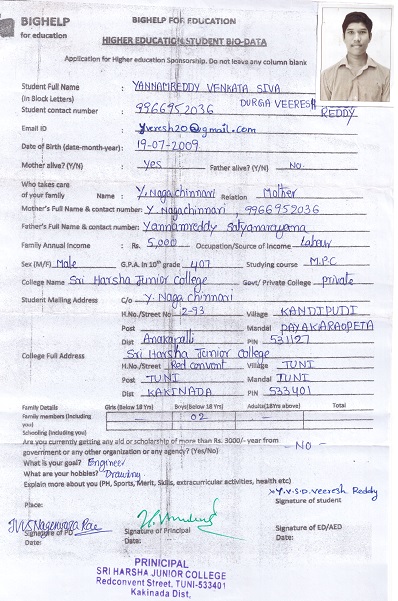 BIGHELP
for education
BIGHELP FOR EDUCATION
HIGHER EDUCATION STUDENT BIO-DATA
Application for Higher education Sponsorship. Do not leave any column blank
Student Full Name : YANNAMREDDY VENKATA SIVA
(in Block Letters) DURGA VEERESH REDDY
Student contact number : 9966952036
Email ID : yveresh20@gmail.com
Date of Birth (date-month-year): 19-07-2009
Mother alive? (Y/N) : Yes Father alive? (Y/N) : No.
Who takes care
of your family Name : Y. Naga chinnari Relation Mother
Mother's Full Name & contact number: Y. Nagachinnari , 9966952036
Father's Full Name & contact number: Yannamreddy Satyanarayana
Family Annual Income : Rs. 5,000 Occupation/Source of Income Labour
Sex (M/F) Male G.P.A. in 10th grade 407 Studying course M.P.C
College Name Sri Harsha Junior college Govt/ Private College private
Student Mailing Address C/o Y. Naga chinnari
H.No./Street No 2-93 Village KANDIPUDI
Post Mandal PAYAKARAOPETA
Dist Anakapalli PIN 531127
College Full Address Sri Harsha Junior college
H.No./Street Red convent Village TUNI
Post TUNI Mandal TUNI
Dist KAKINADA PIN 533401
Family Details Girls (Below 18 Yrs) Boys(Below 18 Yrs) Adults(18Yrs above) Total
Family members (Including you) — 02 —
Schooling (Including you)
Are you currently getting any aid or scholarship of more than Rs. 3000/- year from
government or any other organization or any agency? (Yes/No) - No -
What is your goal? Engineer
What are your hobbies? Drawing
Explain more about you (PH, Sports, Merit, Skills, extracurricular activities, health etc)
x Y.V.S.D. Veeresh Reddy
Place: Signature of student
Signature of PD Signature of Principal Signature of ED/AED
Date: Date: Date:
PRINICIPAL
SRI HARSHA JUNIOR COLLEGE
Redconvent Street, TUNI-533401
Kakinada Dist,